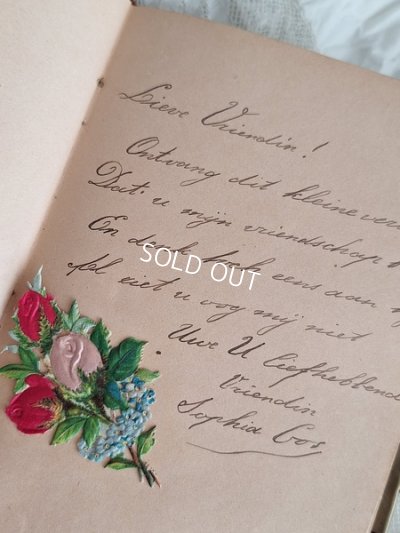 Lieve Vriendin!
Ontvang dit kleine
Dat u mijn vriendschap
En denk toch eens aan
Al ziet u oog mij niet
Uwe U liefhebbend
Vriendin
Sophia
SOLD OUT